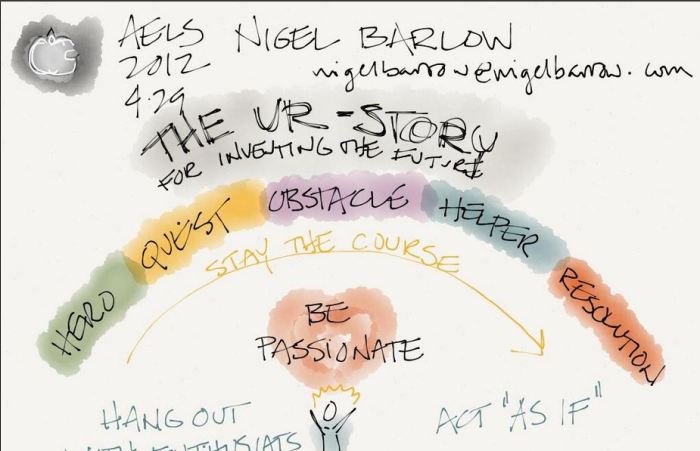 AELS NIGEL BARLOW
2012 nigelbarrow@nigelbarrow.com
4.29
THE UR-STORY
FOR INVENTING THE FUTURE
HERO QUEST OBSTACLE HELPER RESOLUTION
STAY THE COURSE
BE
PASSIONATE
HANG OUT ACT "AS IF"
WITH ENTHUSIATS